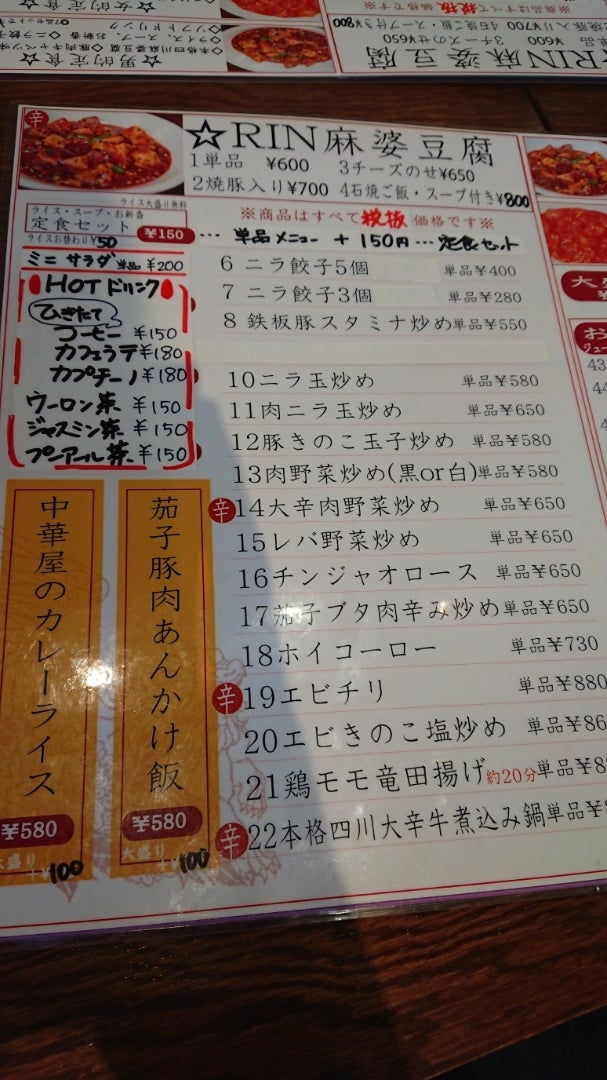 ☆RIN麻婆豆腐
1単品 ¥600 3チーズのせ¥650
2焼豚入り¥700 4石焼ご飯・スープ付き¥800
※商品はすべて税抜価格です※
… 単品メニュー + 150円 … 定食セット
辛
ライス大盛り無料
ライス・スープ・お新香
定食セット ¥150
ライスお替わり¥50
ミニ サラダ 単品 ¥200
HOTドリンク
ひきたて
コーヒー ¥150
カフェラテ ¥180
カプチーノ ¥180
ウーロン茶 ¥150
ジャスミン茶 ¥150
プーアール茶 ¥150
6 ニラ餃子5個 単品¥400
7 ニラ餃子3個 単品¥280
8 鉄板豚スタミナ炒め 単品¥550
10ニラ玉炒め 単品¥580
11肉ニラ玉炒め 単品¥650
12豚きのこ玉子炒め 単品¥580
13肉野菜炒め(黒or白) 単品¥580
辛 14大辛肉野菜炒め 単品¥650
15レバ野菜炒め 単品¥650
16チンジャオロース 単品¥650
17茄子ブタ肉辛み炒め 単品¥650
18ホイコーロー 単品¥730
辛 19エビチリ 単品¥880
20エビきのこ塩炒め 単品¥86
21鶏モモ竜田揚げ 約20分 単品¥8
辛 22本格四川大辛牛煮込み鍋 単品¥
中華屋のカレーライス
¥580
大盛り
+¥100
茄子豚肉あんかけ飯
¥580
大盛り
+¥100
☆RIN麻婆豆腐
1単品 ¥600 3チーズのせ¥650
¥700 4石焼ご飯・スープ付き¥800
税抜
☆男的定食☆
☆女的定食☆